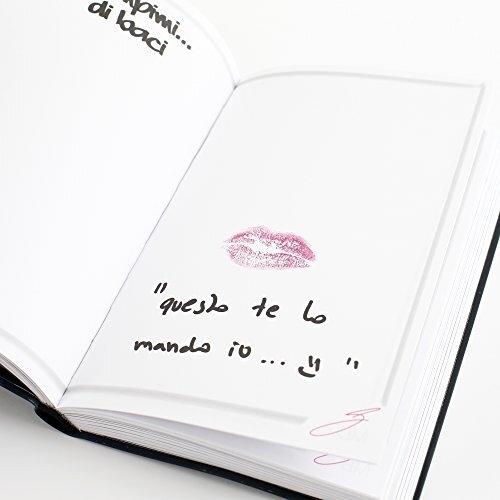 di baci
"questo te lo
mando io... "